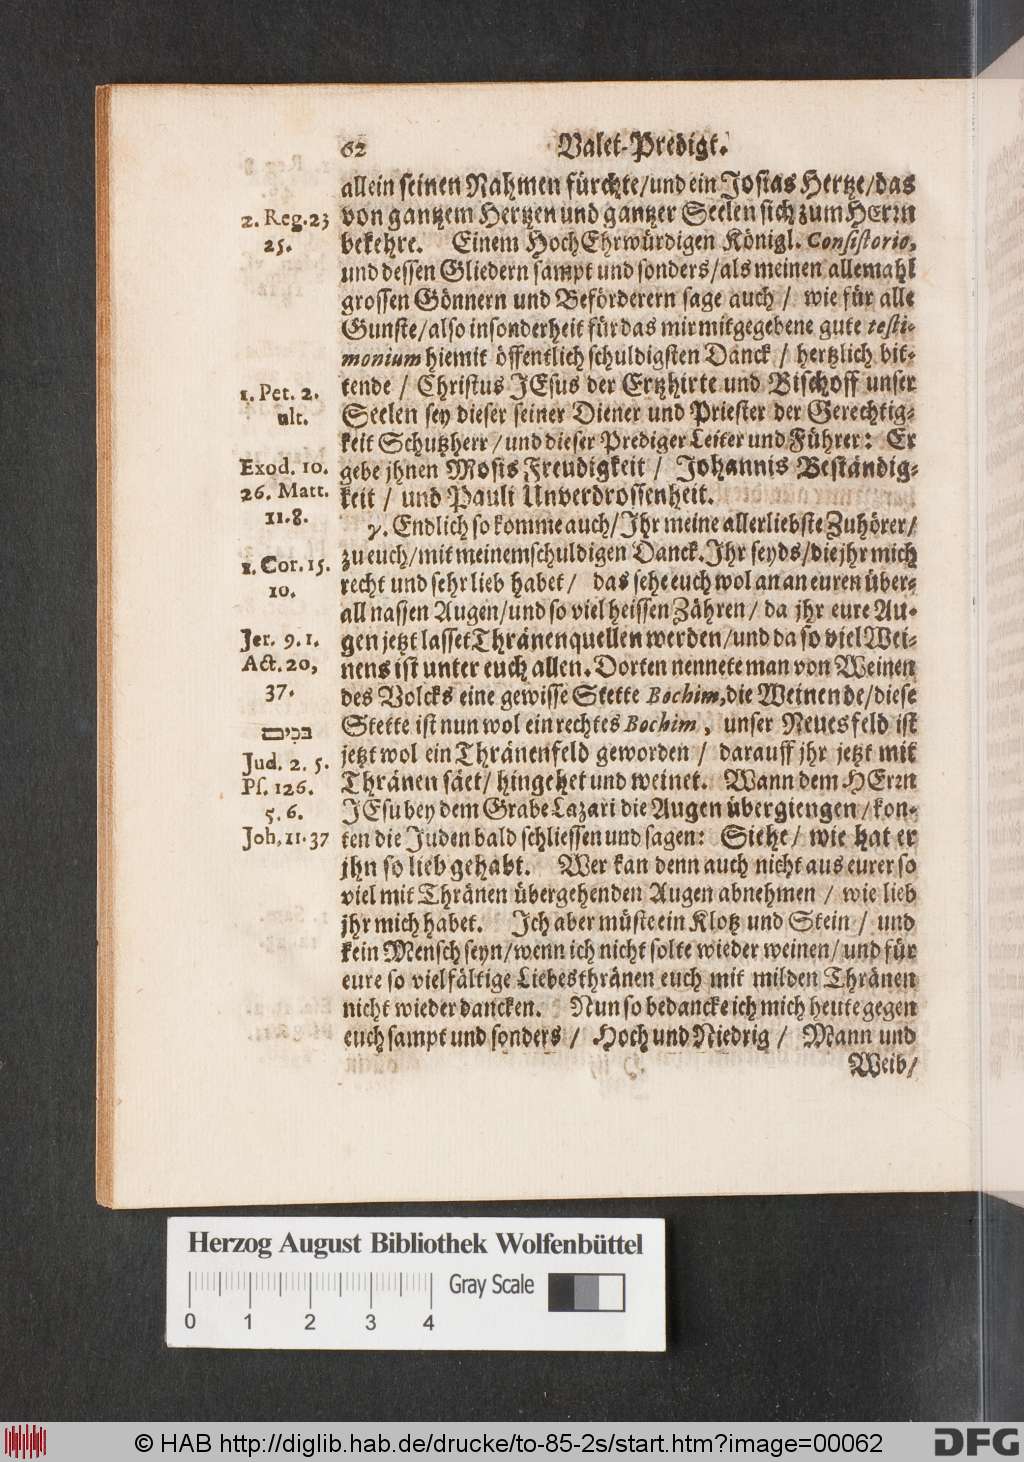 62 Valet-Predigt.
allein seinen Nahmen fürchte/und ein Josias Hertze/das
von gantzem Hertzen und gantzer Seelen sich zum HErrn
bekehre. Einem HochEhrwürdigen Königl. Consistorio,
und dessen Gliedern sampt und sonders/als meinen allemahl
grossen Gönnern und Beförderern sage auch / wie für alle
Gunste/also insonderheit für das mir mitgegebene gute testi-
monium hiemit öffentlich schuldigsten Danck / hertzlich bit-
tende / Christus JEsus der Ertzhirte und Bischoff unser
Seelen sey dieser seiner Diener und Priester der Gerechtig-
keit Schutzherr/und dieser Prediger Leiter und Führer: Er
gebe jhnen Mosis Freudigkeit / Johannis Beständig-
keit / und Pauli Unverdrossenheit.
7. Endlich so komme auch/Jhr meine allerliebste Zuhörer/
zu euch/mit meinem schuldigen Danck. Jhr seyds/die jhr mich
recht und sehr lieb habet / das sehe euch wol an an euren über-
all nassen Augen/und so viel heissen Zähren/ da jhr eure Au-
gen jetzt lasset Thränenquellen werden/und da so viel Wei-
nens ist unter euch allen. Dorten nennete man von Weinen
des Volcks eine gewisse Stette Bochim, die Weinende/diese
Stette ist nun wol ein rechtes Bochim, unser Neuesfeld ist
jetzt wol ein Thränenfeld geworden / darauff jhr jetzt mit
Thränen säet/ hingehet und weinet. Wann dem HErrn
JEsu bey dem Grabe Lazari die Augen übergiengen/kon-
ten die Juden bald schliessen und sagen: Siehe/ wie hat er
jhn so lieb gehabt. Wer kan denn auch nicht aus eurer so
viel mit Thränen übergehenden Augen abnehmen / wie lieb
jhr mich habet. Ich aber müste ein Klotz und Stein / und
kein Mensch seyn/wenn ich nicht solte wieder weinen/ und für
eure so vielfältige Liebesthränen euch mit milden Thränen
nicht wieder dancken. Nun so bedancke ich mich heute gegen
euch sampt und sonders / Hoch und Niedrig / Mann und
Weib/
2. Reg. 23
25.
1. Pet. 2.
ult.
Exod. 10.
26. Matt.
11.8.
1. Cor. 15.
10.
Jer. 9. 1.
Act. 20,
37.
בכים
Jud. 2. 5.
Ps. 126.
5. 6.
Joh, 11. 37
Herzog August Bibliothek Wolfenbüttel
Gray Scale
0 1 2 3 4
© HAB http://diglib.hab.de/drucke/to-85-2s/start.htm?image=00062
DFG